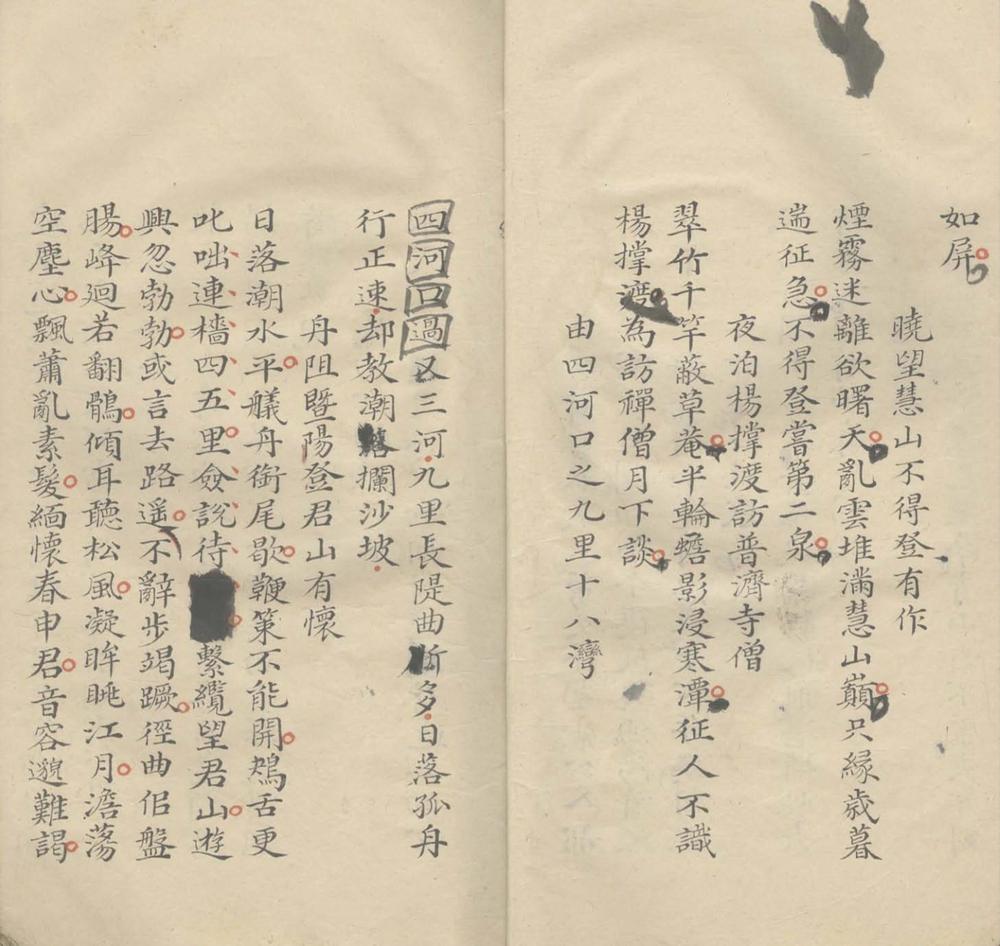 如屏
曉望慧山不得登有作
煙霧迷離欲曙天亂雲堆滿慧山巔只緣歲暮
遄征急不得登嘗第二泉
夜泊楊撐渡訪普濟寺僧
翠竹千竿蔽草菴半輪蟾影浸寒潭征人不識
楊撐渡為訪禪僧月下談
由四河口之九里十八灣
四河口過又三河九里長隄曲折多日落孤舟
行正速却教潮落攔沙坡
舟阻暨陽登君山有懷
日落潮水平艤舟銜尾歇鞭策不能開鴂舌更
叱咄連檣四五里僉說待繫纜望君山遊
興忽勃勃或言去路遥不辭步竭蹶徑曲佀盤
腸峰迴若翻鶻傾耳聽松風凝眸眺江月澹蕩
空塵心飄蕭亂素髮緬懷春申君音容邈難謁